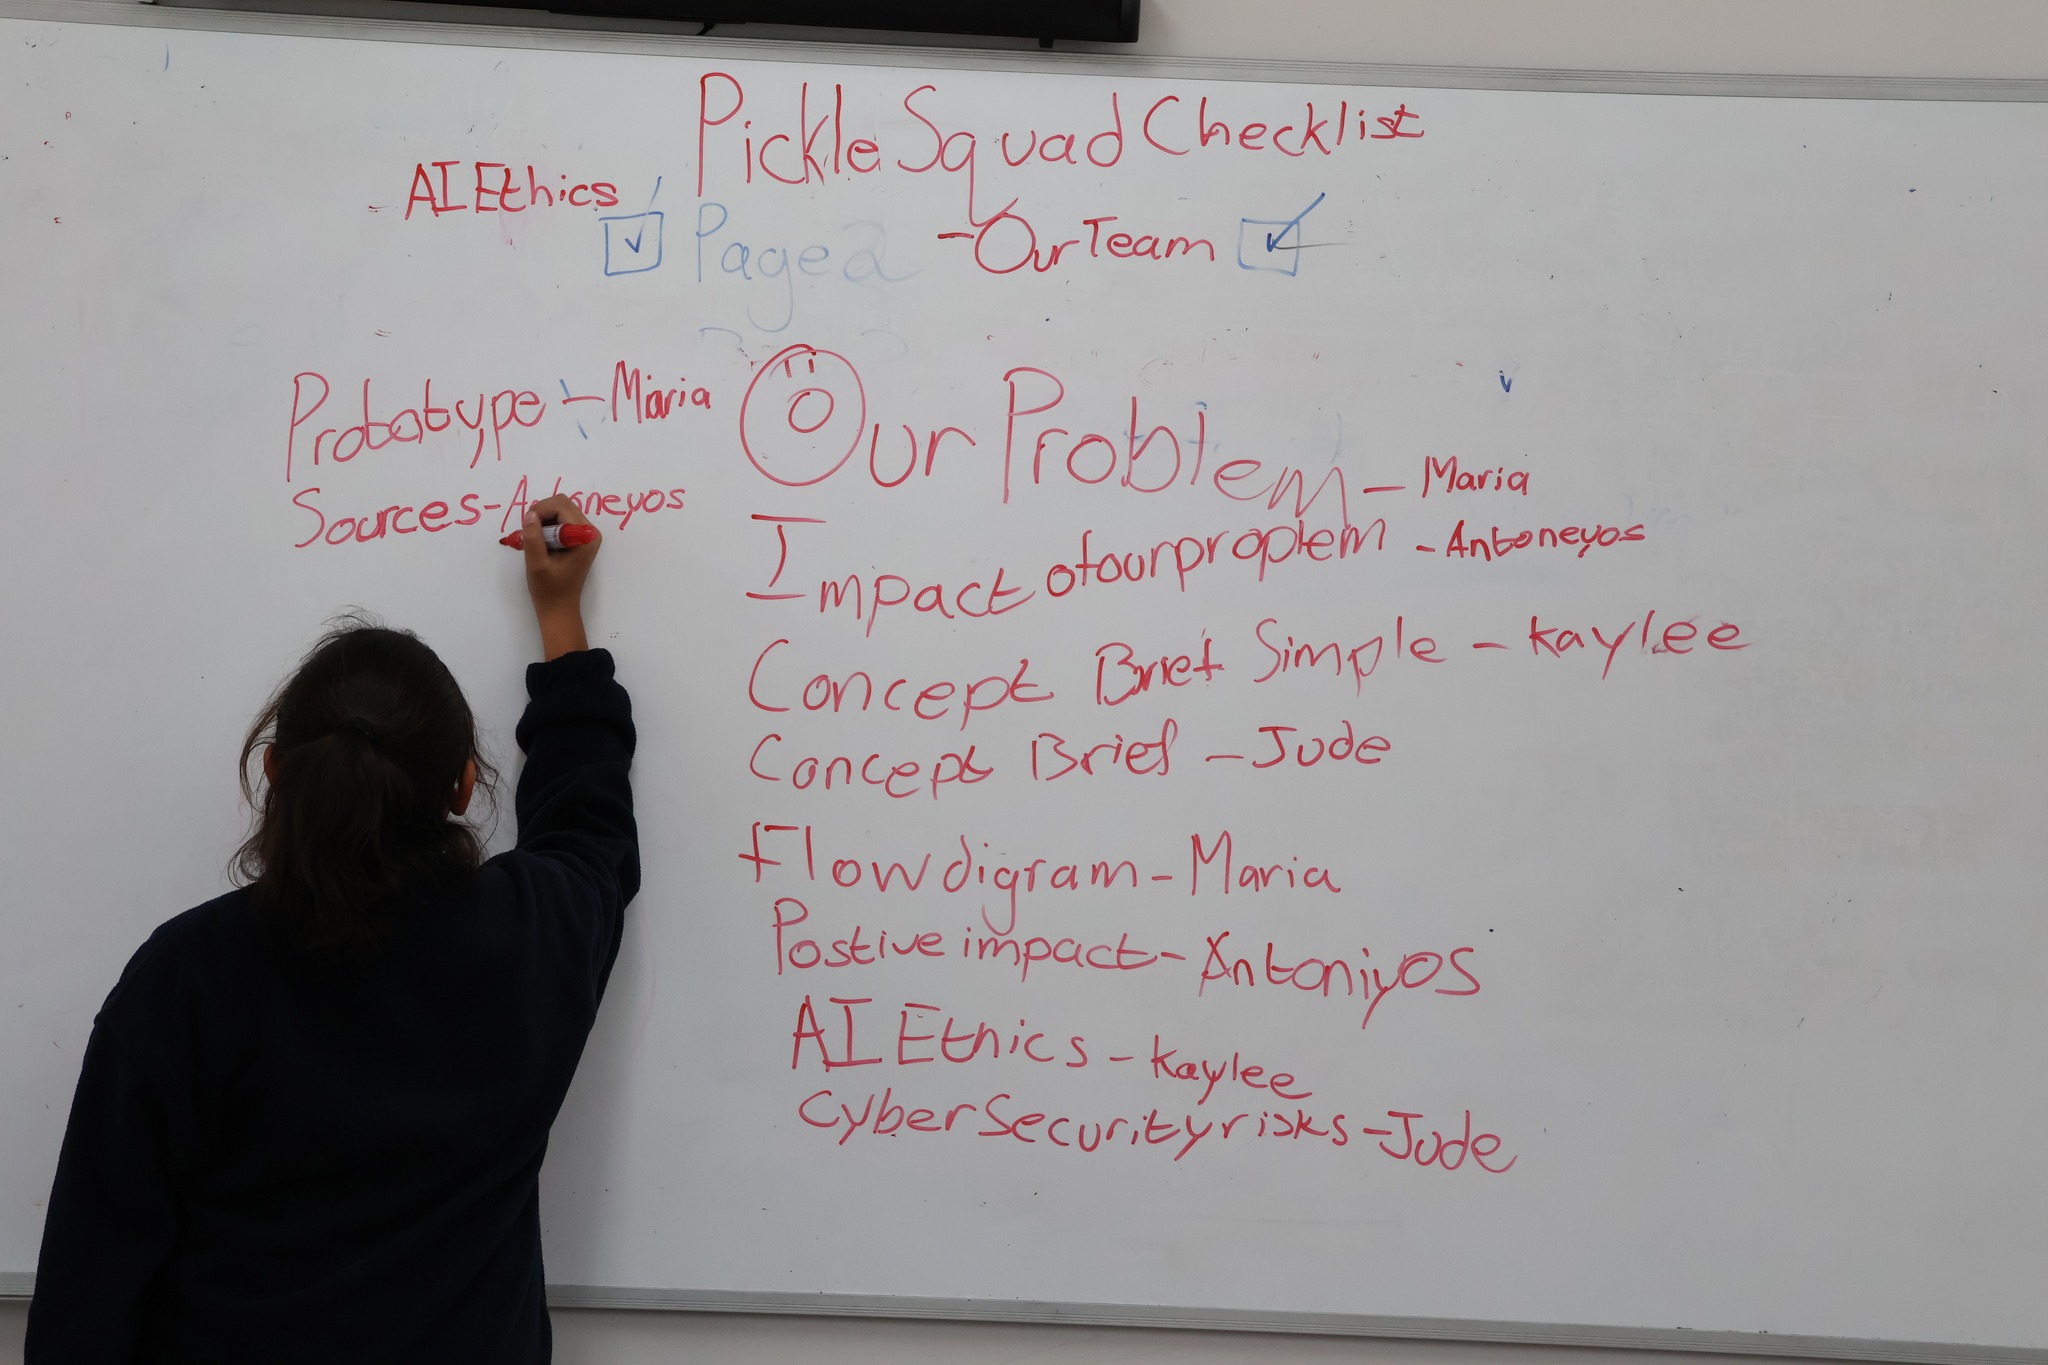 Pickle Squad Checklist
AI Ethics
Page 2
- Our Team
Prototype - Maria
Sources - Antoneyos
Our Problem - Maria
Impact of our proplem - Antoneyos
Concept Brief Simple - Kaylee
Concept Brief - Jude
Flow digram - Maria
Postive impact - Antoniyos
AI Ethics - Kaylee
Cyber Security risks - Jude